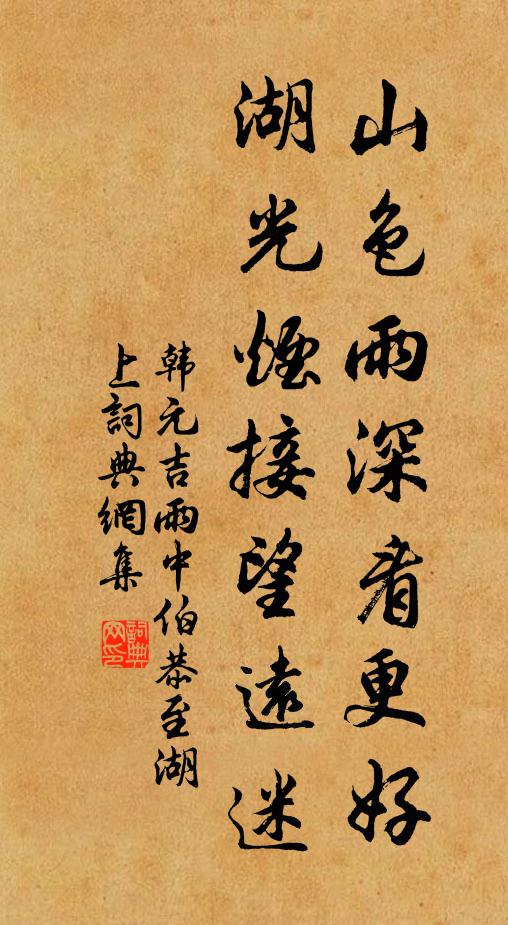 山色雨深看更好
湖光煙接望遠迷
韩元吉雨中伯恭至湖
上詞典網集
詞典
网印